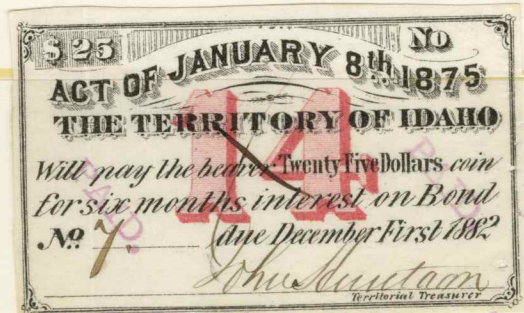 $25 No
ACT OF JANUARY 8th 1875
THE TERRITORY OF IDAHO
14
Will pay the bearer Twenty Five Dollars coin
for six months interest on Bond
No. 7. due December First 1882
PAID.
PAID
John Huntoon
Territorial Treasurer